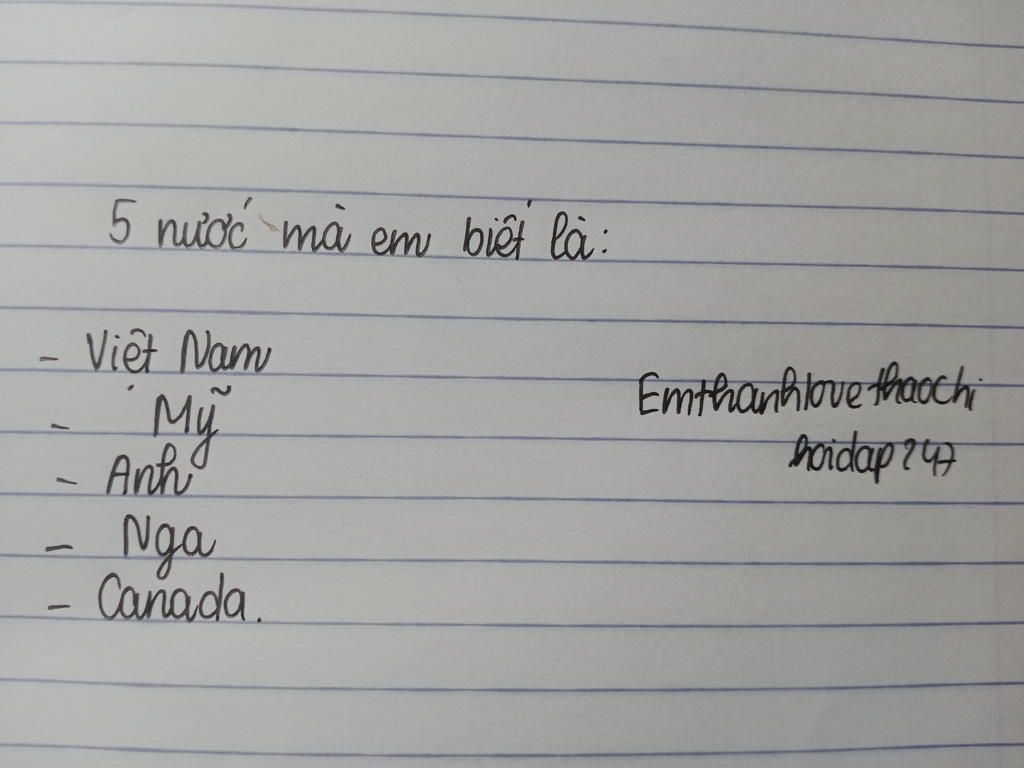 5 nước mà em biết là:
- Việt Nam
- Mỹ
- Anh
- Nga
- Canada.
Emthanhlovethaochi
hoidap247